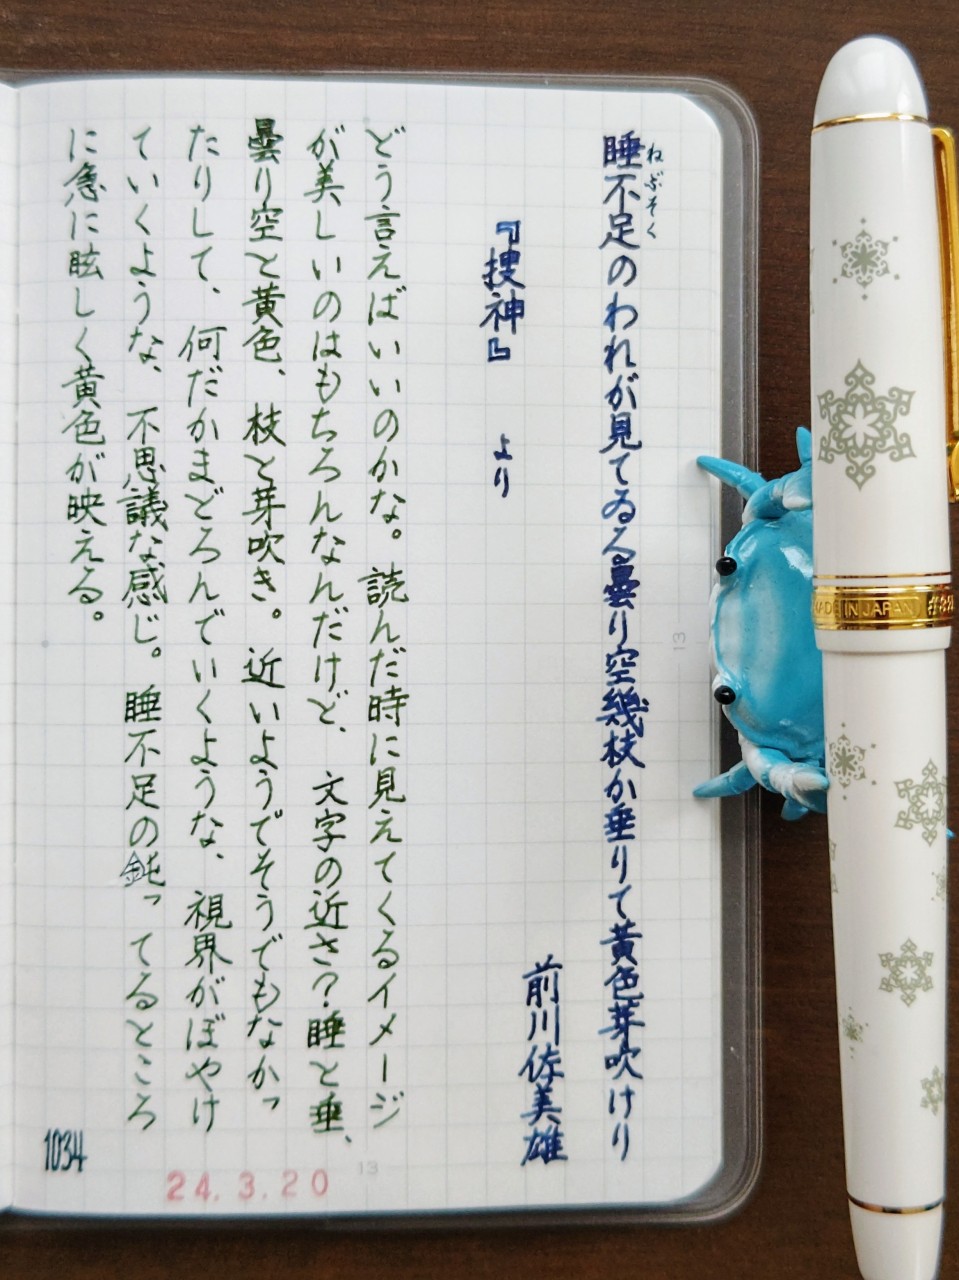 睡不足のわれが見てゐる曇り空幾枝か垂りて黄色芽吹けり
ねぶそく
前川佐美雄
『捜神』 より
どう言えばいいのかな。読んだ時に見えてくるイメージ
が美しいのはもちろんなんだけど、文字の近さ?睡と垂、
曇り空と黄色、枝と芽吹き。近いようでそうでもなかっ
たりして、何だかまどろんでいくような、視界がぼやけ
ていくような、不思議な感じ。睡不足の鈍ってるところ
に急に眩しく黄色が映える。
1034
24.3.20
13
13
MADE IN JAPAN